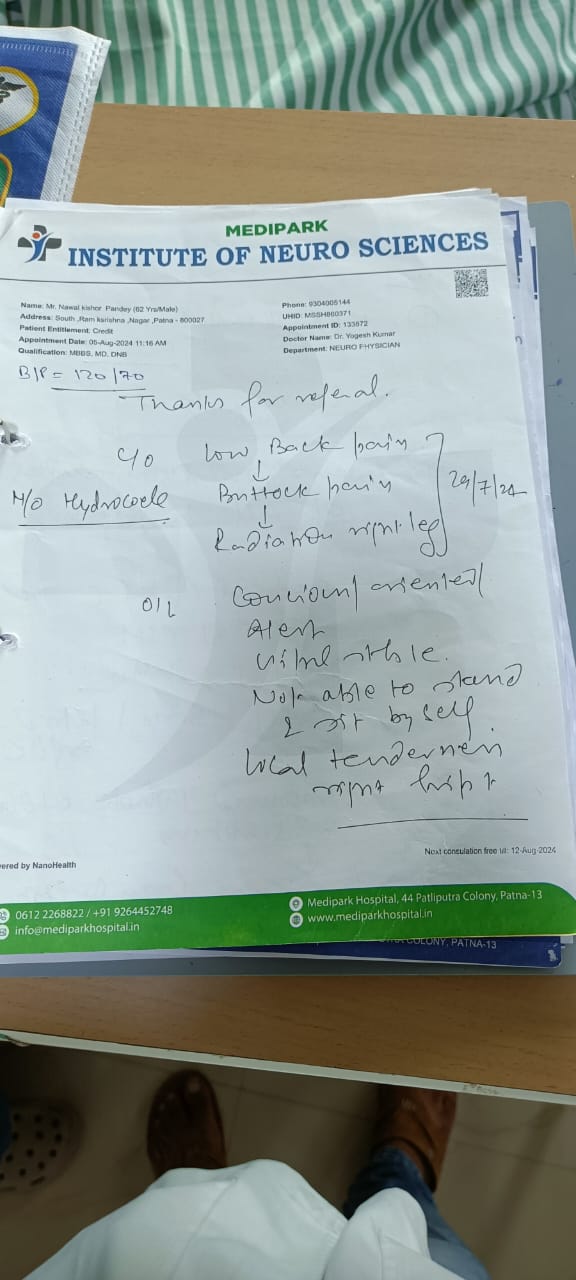 MEDIPARK
INSTITUTE OF NEURO SCIENCES
Name: Mr. Nawal kishor Pandey (62 Yrs/Male)
Address: South ,Ram karishna ,Nagar ,Patna - 800027
Patient Entitlement: Credit
Appointment Date: 05-Aug-2024 11:16 AM
Qualification: MBBS, MD, DNB
Phone: 9304005144
UHID: MSSH860371
Appointment ID: 133872
Doctor Name: Dr. Yogesh Kumar
Department: NEURO PHYSICIAN
B/P = 120/70
Thanks for referal.
C/O Low Back pain
H/O Hydrocele Buttock pain 29/7/24
Radiation right leg
Concious oriented
Alert
stable.
Not able to stand
& sit by self
Local tenderness
right hip +
Next consulation free till: 12-Aug-2024
ered by NanoHealth
0612 2268822 / +91 9264452748
info@mediparkhospital.in
Medipark Hospital, 44 Patliputra Colony, Patna-13
www.mediparkhospital.in
COLONY, PATNA-13